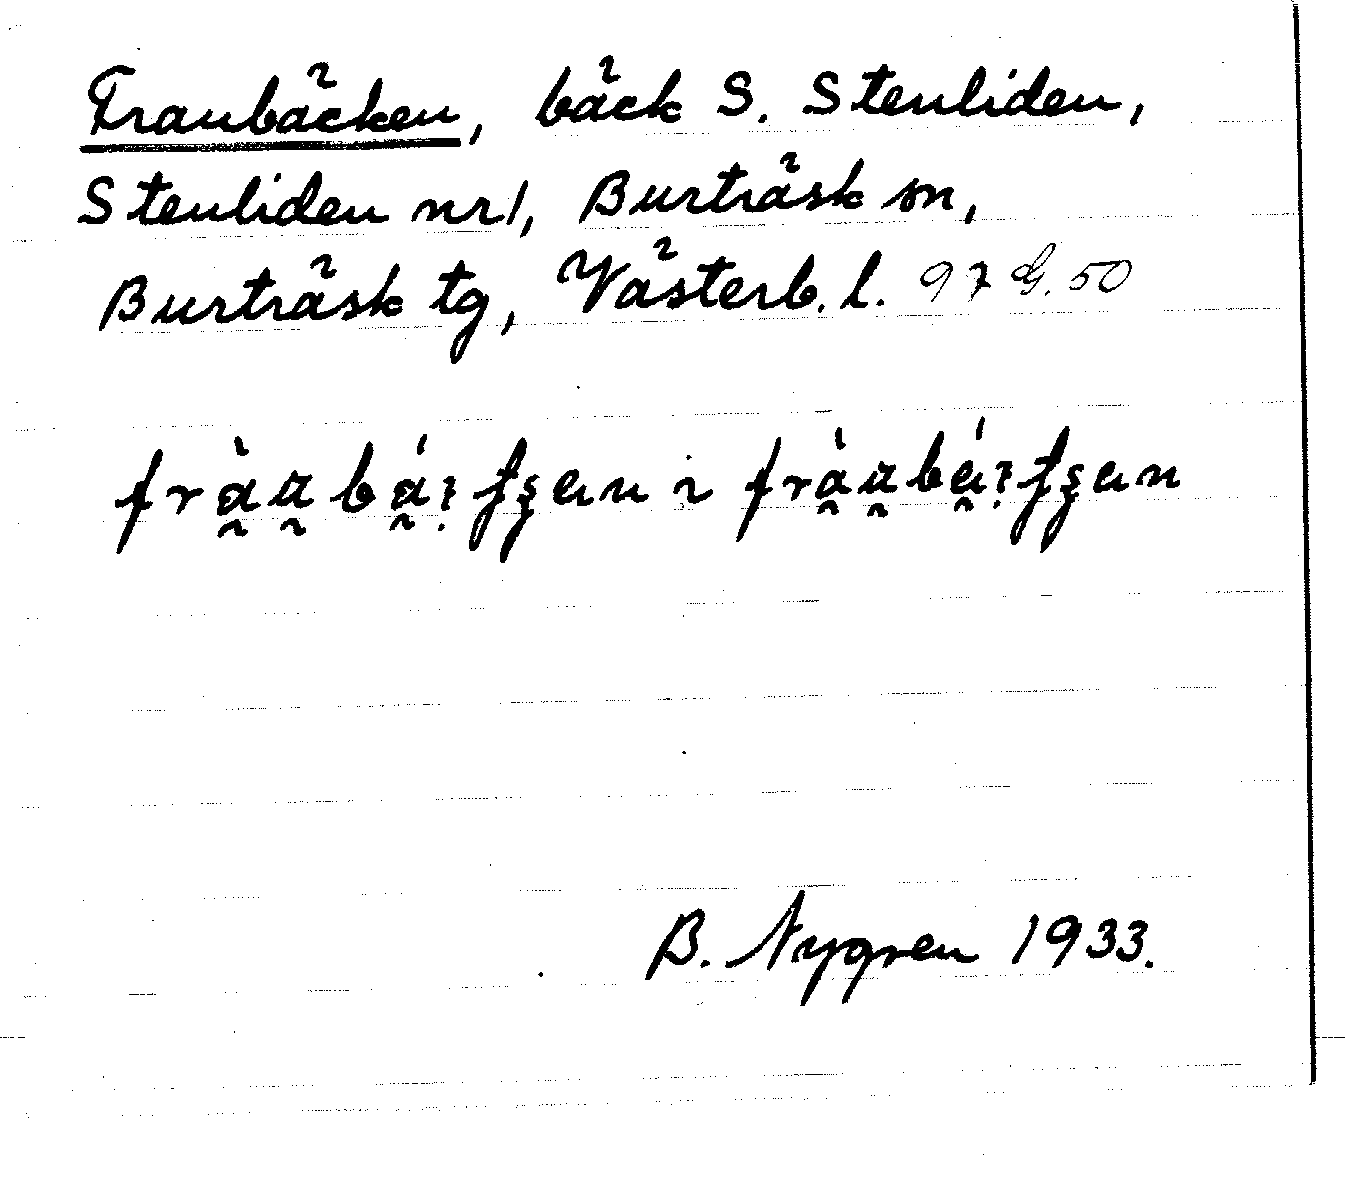 Franbäcken, bäck S. Stenliden,
Stenliden nr 1, Burträsk sn,
Burträsk tg, Västerb. l. 97 G. 50
B. Nygren 1933.